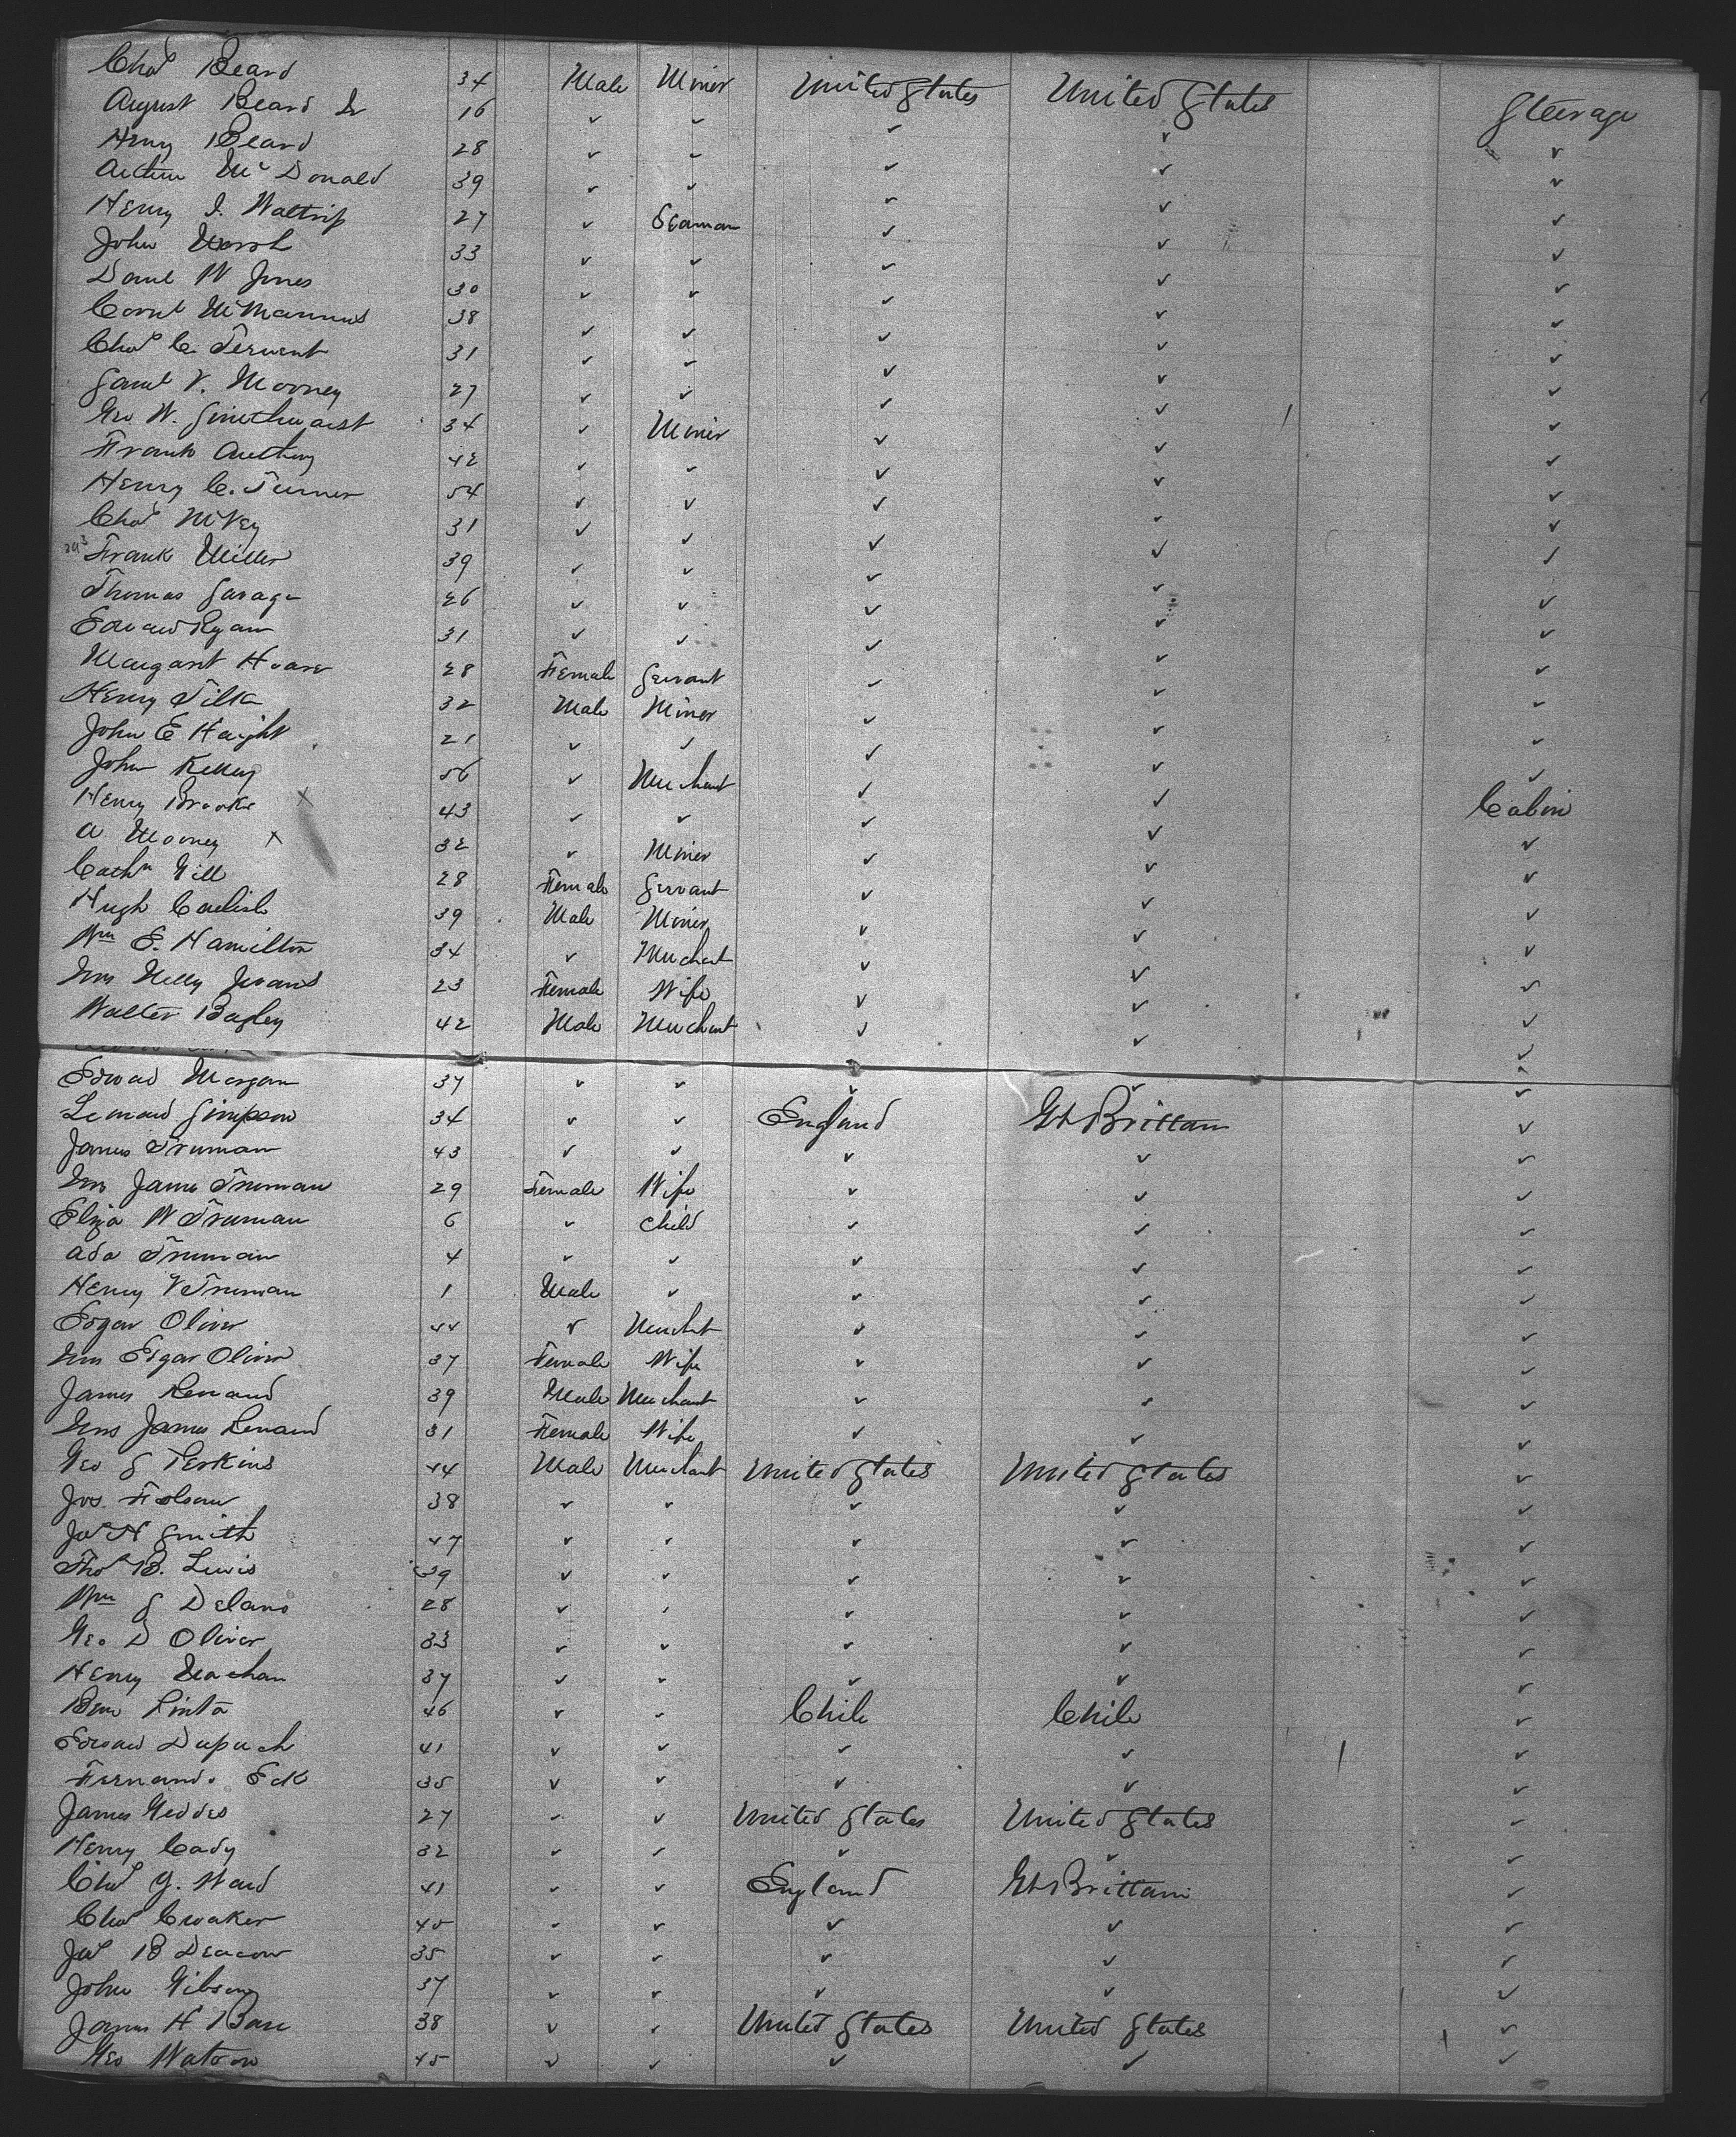 Chas Beard 34 Male Miner United States United States Steerage
August Beard Jr 16 ✓ ✓ ✓ ✓ ✓
Henry Beard 28 ✓ ✓ ✓ ✓ ✓
Arthur McDonald 39 ✓ ✓ ✓ ✓ ✓
Henry I. Waltrip 27 ✓ Seaman ✓ ✓ ✓
John 33 ✓ ✓ ✓ ✓ ✓
Danl W Jones 30 ✓ ✓ ✓ ✓ ✓
Cornl McMannus 38 ✓ ✓ ✓ ✓ ✓
Chas C. Fervent 31 ✓ ✓ ✓ ✓ ✓
Saml V. Mooney 27 ✓ ✓ ✓ ✓ ✓
Geo W. 34 ✓ Miner ✓ ✓ ✓
Frank Anthony 42 ✓ ✓ ✓ ✓ ✓
Henry C. Turner 54 ✓ ✓ ✓ ✓ ✓
Chas McVey 31 ✓ ✓ ✓ ✓ ✓
Frank Miller 39 ✓ ✓ ✓ ✓ ✓
Thomas Savage 26 ✓ ✓ ✓ ✓ ✓
Edward Ryan 31 ✓ ✓ ✓ ✓ ✓
Margaret Hoare 28 Female Servant ✓ ✓ ✓
Henry Silk 32 Male Miner ✓ ✓ ✓
John E Haight 21 ✓ ✓ ✓ ✓ ✓
John Kelley 56 ✓ Merchant ✓ ✓ Cabin
Henry Brooks X 43 ✓ ✓ ✓ ✓ ✓
A Mooney X 32 ✓ Miner ✓ ✓ ✓
Cathn Gill 28 Female Servant ✓ ✓ ✓
Hugh Carlisle 39 Male Miner ✓ ✓ ✓
Wm E. Hamilton 34 ✓ Merchant ✓ ✓ ✓
Mrs Nelly Jevans 23 Female Wife ✓ ✓ ✓
Walter Bagley 42 Male Merchant ✓ ✓ ✓
Edward Morgan 37 ✓ ✓ ✓ ✓ ✓
Lenard Simpson 34 ✓ ✓ England Gt Brittain ✓
James Truman 43 ✓ ✓ ✓ ✓ ✓
Mrs James Truman 29 Female Wife ✓ ✓ ✓
Eliza W Truman 6 ✓ Child ✓ ✓ ✓
Ada Truman 4 ✓ ✓ ✓ ✓ ✓
Henry V Truman 1 Male ✓ ✓ ✓ ✓
Edgar Oliver 44 ✓ Mercht ✓ ✓ ✓
Mrs Edgar Oliver 37 Female Wife ✓ ✓ ✓
James Renand 39 Male Merchant ✓ ✓ ✓
Mrs James Renand 31 Female Wife ✓ ✓ ✓
Geo S Perkins 44 Male Merchant United States United States ✓
Jos. Folsom 38 ✓ ✓ ✓ ✓ ✓
Jas H Smith 47 ✓ ✓ ✓ ✓ ✓
Thos B. Lewis 39 ✓ ✓ ✓ ✓ ✓
Wm S Delano 28 ✓ ✓ ✓ ✓ ✓
Geo D Oliver 33 ✓ ✓ ✓ ✓ ✓
Henry Meachan 37 ✓ ✓ ✓ ✓ ✓
Ben Pinto 46 ✓ ✓ Chile Chile ✓
Edward Dupuch 41 ✓ ✓ ✓ ✓ ✓
Fernando Eck 35 ✓ ✓ ✓ ✓ ✓
James Geddes 27 ✓ ✓ United States United States ✓
Henry Cady 32 ✓ ✓ ✓ ✓ ✓
Chas G. Ward 41 ✓ ✓ England Gt Brittain ✓
Chas Croaker 45 ✓ ✓ ✓ ✓ ✓
Jas B Deacon 35 ✓ ✓ ✓ ✓ ✓
John Gibson 37 ✓ ✓ ✓ ✓ ✓
James H Base 38 ✓ ✓ United States United States ✓
Geo Watson 45 ✓ ✓ ✓ ✓ ✓